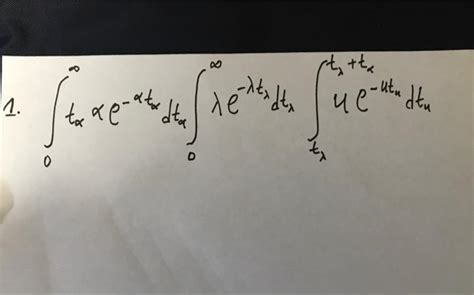 1. ∫₀^∞ t_α α e^{-αt_α} dt_α ∫₀^∞ λ e^{-λt_λ} dt_λ ∫_{t_λ}^{t_λ+t_α} u e^{-ut_u} dt_u